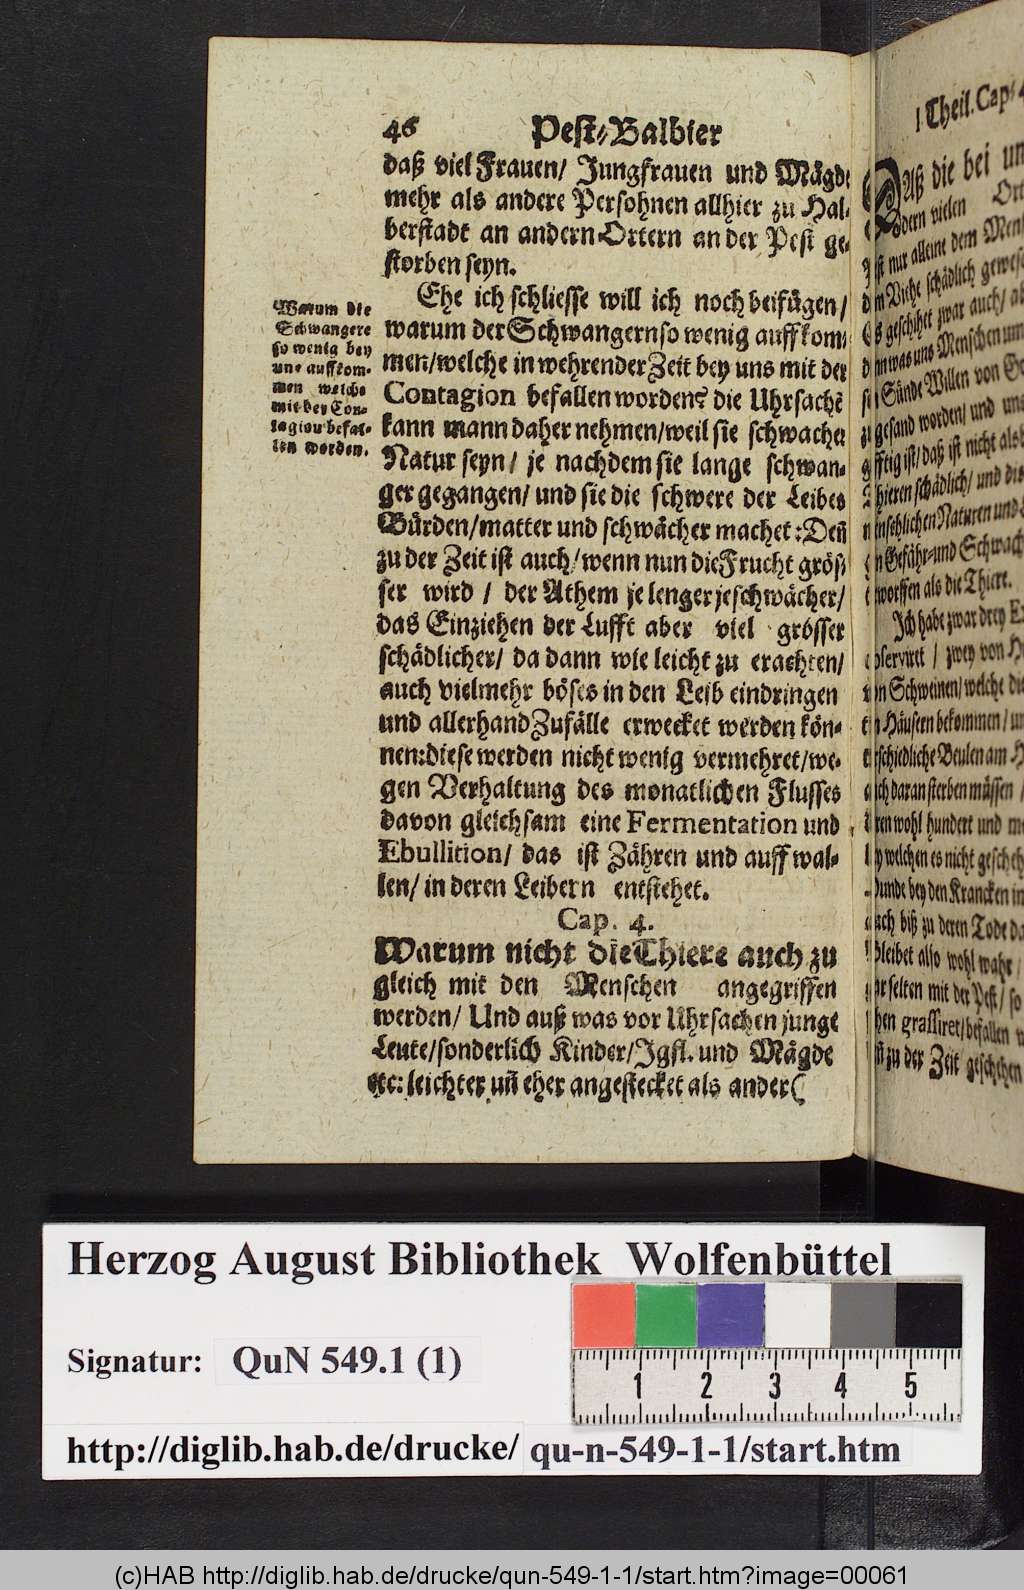 46 Pest-Balbier
daß viel Frauen/ Jungfrauen und Mägde
mehr als andere Persohnen allhier zu Hal-
berstadt an andern Ortern an der Pest ge-
storben seyn.
Ehe ich schliesse will ich noch beifügen/
warum der Schwangern so wenig auffkom-
men/welche in wehrender Zeit bey uns mit der
Contagion befallen worden? die Uhrsachē
kann mann daher nehmen/weil sie schwacher
Natur seyn/ je nachdem sie lange schwan-
ger gegangen/ und sie die schwere der Leibes
Bürden/matter und schwächer machet: Deñ
zu der Zeit ist auch/wenn nun die Frucht grös-
ser wird / der Athem je lenger je schwächer/
das Einziehen der Lufft aber viel grösser
schädlicher/ da dann wie leicht zu erachten/
auch vielmehr böses in den Leib eindringen
und allerhand Zufälle erwecket werden kön-
nen: diese werden nicht wenig vermehret/we-
gen Verhaltung des monatlichen Flusses
davon gleichsam eine Fermentation und
Ebullition/ das ist Zähren und auff wal-
len/ in deren Leibern entstehet.
Warum die
Schwangere
so wenig bey
uns auffkom-
men welche
mit der Con-
tagion befal-
len worden.
Cap. 4.
Warum nicht die Thiere auch zu
gleich mit den Menschen angegriffen
werden/ Und auß was vor Uhrsachen junge
Leute/sonderlich Kinder/Jgfl. und Mägde
etc: leichter uñ eher angestecket als ander(
I Theil. Cap. 4
Aß die bei un
dern vielen Ort
ist nur alleine dem Men
Viehe schädlich gewes
geschihet zwar auch/ ab
was uns Menschen um
Sünde Willen von Go
gesand worden/ und uns
fftig ist/ daß ist nicht als
hieren schädlich/ und die
nschlichen Naturen und
Gefähr-und Schwach
worffen als die Thiere.
Ich habe zwar drey Ex
observiret / zwey von H
Schweinen/welche die
Häusern bekommen/ un
rschiedliche Beulen am H
ch daran sterben müssen /
ren wohl hundert und me
y welchen es nicht gescheh
unde bey den Krancken in
uch biß zu deren Tode da
bleibet also wohl wahr /
r selten mit der Pest/ so
hen grassiret/befallen w
zu der Zeit geschehen
Herzog August Bibliothek Wolfenbüttel
Signatur: QuN 549.1 (1)
1 2 3 4 5
http://diglib.hab.de/drucke/ qu-n-549-1-1/start.htm
(c)HAB http://diglib.hab.de/drucke/qun-549-1-1/start.htm?image=00061